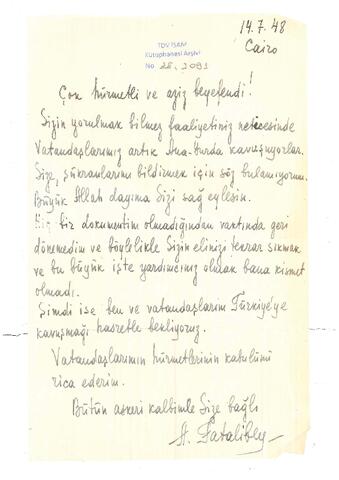 14.7.48
Cairo
TDV İSAM
Kütüphanesi Arşivi
No 28.2091
Çok hürmetli ve aziz beyefendi!
Sizin yorulmak bilmez faaliyetiniz neticesinde
Vatandaşlarımız artık Ana-Yurda kavuşuyorlar.
Size, şükranlarımı bildirmek için söz bulamıyorum.
Büyük Allah dayıma Sizi sağ eylesin.
Hiç bir dokumentim olmadığından vaktında geri
dönemedim ve böylelikle Sizin elinizi tekrar sıkmak
ve bu büyük işte yardımcınız olmak bana kismet
olmadı.
Şimdi ise ben ve vatandaşlarım Türkiye'ye
kavuşmağı hasretle bekliyoruz.
Vatandaşlarımın hürmetlerinin kabulünü
rica ederim.
Bütün askeri kalbimle Size bağlı
A. Fatalibey